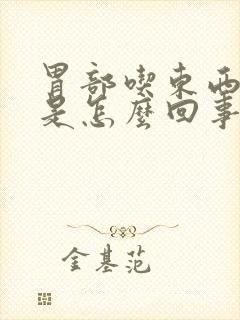 胃部喫東西
是怎麼回事
金基范